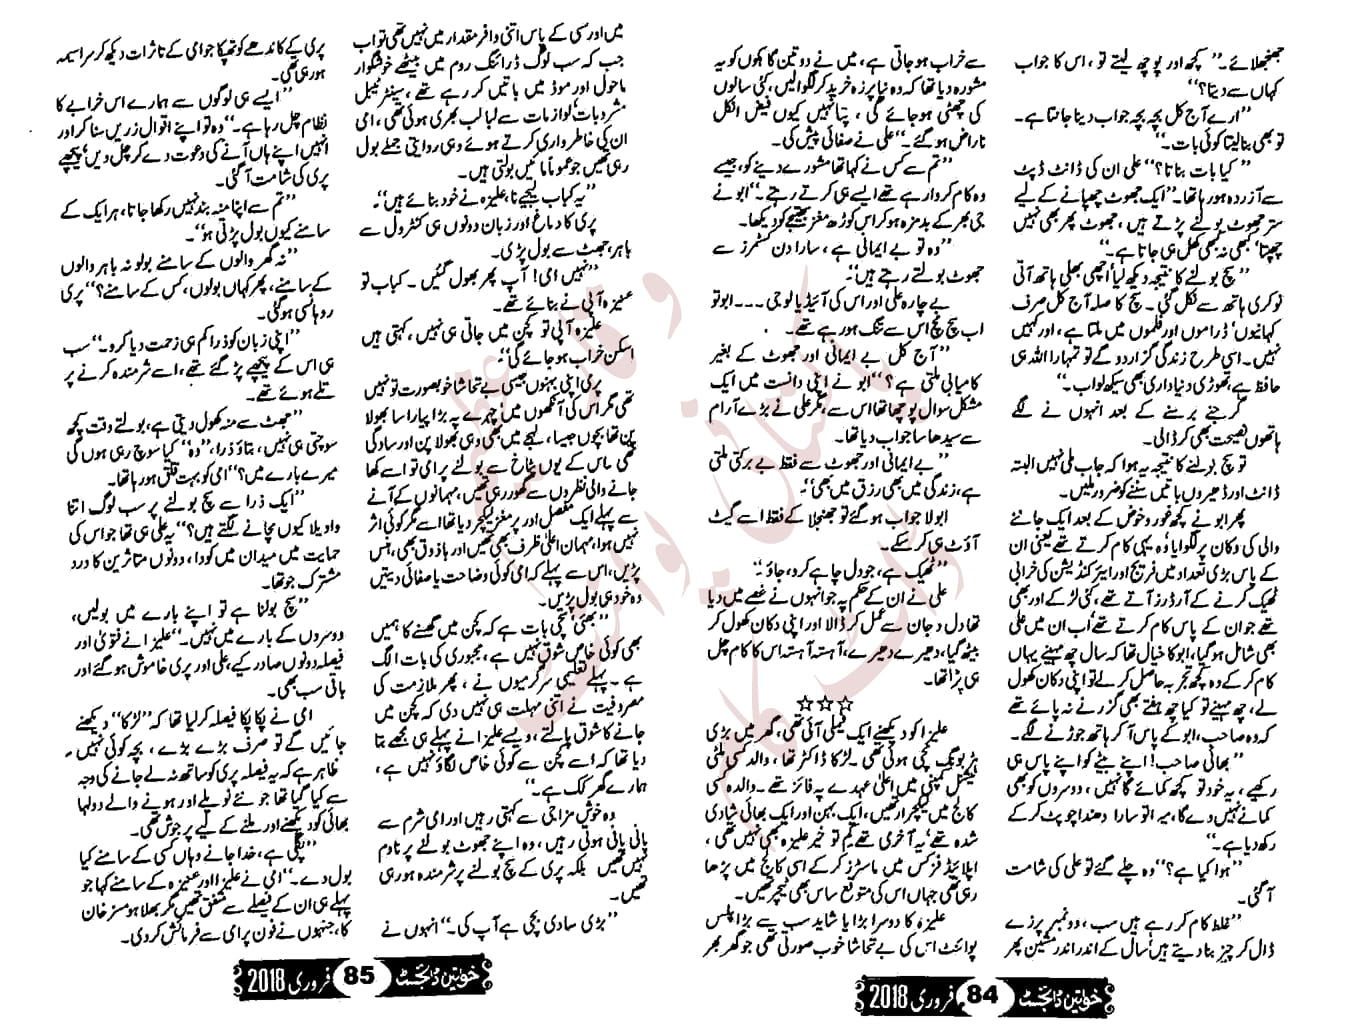 جھنجھلائے۔ ”کچھ اور پوچھ لیتے تو، اس کا جواب
کہاں سے دیتا؟“
”ارے آج کل بچہ بچہ جواب دینا جانتا ہے۔
تو بھی بنا لیتا کوئی بات۔“
”کیا بات بناتا؟“ علی ان کی ڈانٹ ڈپٹ
سے آزردہ ہو رہا تھا۔ ”ایک جھوٹ چھپانے کے لیے
ستر جھوٹ بولنے پڑتے ہیں، جھوٹ پھر بھی نہیں
چھپتا‘ کبھی نہ کبھی کھل ہی جاتا ہے۔“
”سچ بولنے کا نتیجہ دیکھ لیا‘ اچھی بھلی ہاتھ آتی
نوکری ہاتھ سے نکل گئی۔ سچ کا صلہ آج کل صرف
کہانیوں‘ ڈراموں اور فلموں میں ملتا ہے، اور کہیں
نہیں۔ اسی طرح زندگی گزار دو گے تو تمہارا اللہ ہی
حافظ ہے، تھوڑی دنیا داری بھی سیکھ لو اب۔“
گرجنے برسنے کے بعد انہوں نے لگے
ہاتھوں نصیحت بھی کر ڈالی۔
تو سچ بولنے کا نتیجہ یہ ہوا کہ جاب ملی نہیں البتہ
ڈانٹ اور ڈھیروں باتیں سننے کو ضرور ملیں۔
پھر ابو نے کچھ غور و خوض کے بعد ایک جاننے
والی کی دکان پر لگوایا‘ وہ یہی کام کرتے تھے یعنی ان
کے پاس بڑی تعداد میں فریج اور ایئر کنڈیشن کی خرابی
ٹھیک کرنے کے آرڈرز آتے تھے، کئی لڑکے اور بھی
تھے جو ان کے پاس کام کرتے تھے‘ اب ان میں علی
بھی شامل ہو گیا، ابو کا خیال تھا کہ سال چھ مہینے یہاں
کام کر کے وہ کچھ تجربہ حاصل کر لے تو اپنی دکان کھول
لے، چھ مہینے تو کیا چھ ہفتے بھی گزرنے نہ پائے تھے
کہ وہ صاحب، ابو کے پاس آ کر ہاتھ جوڑنے لگے۔
”بھائی صاحب! اپنے بیٹے کو اپنے پاس ہی
رکھیے، یہ خود تو کچھ کمائے گا نہیں، دوسروں کو بھی
کمانے نہیں دے گا، میرا تو سارا دھندا چوپٹ کر کے
رکھ دیا ہے۔“
”ہوا کیا ہے؟“ وہ چلے گئے تو علی کی شامت
آ گئی۔
”غلط کام کر رہے ہیں سب، دو نمبر پرزے
ڈال کر چیز بنا دیتے ہیں‘ سال کے اندر اندر مشین پھر
سے خراب ہو جاتی ہے، میں نے دو تین گاہکوں کو یہ
مشورہ دیا تھا کہ وہ نیا پرزہ خرید کر لگوا لیں، کئی سالوں
کی چھٹی ہو جائے گی، پتا نہیں کیوں فیض انکل
ناراض ہو گئے۔“ علی نے صفائی پیش کی۔
”تم سے کس نے کہا تھا مشورے دینے کو، جیسے
وہ کام کروا رہے تھے ایسے ہی کرتے رہتے۔“ ابو نے
جی بھر کے بدمزہ ہو کر اس کوڑھ مغز بھتیجے کو دیکھا۔
”وہ تو بے ایمانی ہے، سارا دن کسٹمرز سے
جھوٹ بولتے رہتے ہیں۔“
بے چارہ علی اور اس کی آئیڈیالوجی۔۔۔ ابو تو
اب سچ مچ اس سے تنگ ہو رہے تھے۔
”آج کل بے ایمانی اور جھوٹ کے بغیر
کامیابی ملتی ہے؟“ ابو نے اپنی دانست میں ایک
مشکل سوال پوچھا تھا اس سے، مگر علی نے بڑے آرام
سے سیدھا سا جواب دیا تھا۔
”بے ایمانی اور جھوٹ سے فقط بے برکتی ملتی
ہے، زندگی میں بھی رزق میں بھی۔“
ابو لاجواب ہو گئے تو جھنجلا کے فقط اسے گیٹ
آؤٹ ہی کر سکے۔
”ٹھیک ہے، جو دل چاہے کرو، جاؤ۔“
علی نے ان کے حکم پہ جو انہوں نے غصے میں دیا
تھا دل و جان سے عمل کر ڈالا اور اپنی دکان کھول کر
بیٹھ گیا، دھیرے دھیرے، آہستہ آہستہ اس کا کام چل
ہی پڑا تھا۔
☆☆☆
علیزا کو دیکھنے ایک فیملی آئی تھی، گھر میں بڑی
ہڑبونگ مچی ہوئی تھی۔ لڑکا ڈاکٹر تھا، والد کسی ملٹی
نیشنل کمپنی میں اعلیٰ عہدے پہ فائز تھے۔ والدہ کسی
کالج میں لیکچرار تھیں، ایک بہن اور ایک بھائی شادی
شدہ تھے‘ یہ آخری تھے کم تو خیر علیزہ بھی نہیں تھی،
اپلائیڈ فزکس میں ماسٹرز کر کے اسی کالج میں پڑھا
رہی تھی جہاں اس کی متوقع ساس بھی ٹیچر تھیں۔
علیزہ کا دوسرا بڑا یا شاید سب سے بڑا پلس
پوائنٹ اس کی بے تحاشا خوب صورتی تھی جو گھر بھر
خواتین ڈائجسٹ 84 فروری 2018
میں اور کسی کے پاس اتنی وافر مقدار میں نہیں تھی تو اب
جب کہ سب لوگ ڈرائنگ روم میں بیٹھے خوشگوار
ماحول اور موڈ میں باتیں کر رہے تھے، سینٹر ٹیبل
مشروبات‘ لوازمات سے لبالب بھری ہوئی تھی، امی
ان کی خاطر داری کرتے ہوئے وہی روایتی جملے بول
رہی تھیں جو عموماً مائیں بولتی ہیں۔
”یہ کباب لیجیے نا، علیزہ نے خود بنائے ہیں۔“
پری کا دماغ اور زبان دونوں ہی کنٹرول سے
باہر، جھٹ سے بول پڑی۔
”نہیں امی! آپ پھر بھول گئیں۔ کباب تو
عنیزہ آپی نے بنائے تھے۔
علیزہ آپی تو کچن میں جاتی ہی نہیں، کہتی ہیں
اسکن خراب ہو جائے گی۔“
پری اپنی بہنوں جیسی بے تحاشا خوبصورت تو نہیں
تھی مگر اس کی آنکھوں میں‘ چہرے پہ بڑا پیارا سا بھولا
پن تھا بچوں جیسا، لہجے میں بھی وہی بھولا پن اور سادگی
تھی۔ اس کے یوں پٹاخ سے بولنے پر امی تو اسے کھا
جانے والی نظروں سے گھور رہی تھیں، مہمانوں کے آنے
سے پہلے ایک مفصل اور پر مغز لیکچر دیا تھا اسے مگر کوئی اثر
نہیں ہوا، مہمان اعلیٰ ظرف بھی تھیں اور باذوق بھی، ہنس
پڑیں، اس سے پہلے کہ امی کوئی وضاحت یا صفائی دیتیں
وہ خود ہی بول پڑیں۔
”بھئی‘ سچی بات ہے کہ کچن میں گھسنے کا ہمیں
بھی کوئی خاص شوق نہیں ہے، مجبوری کی بات الگ
ہے۔ پہلے تعلیمی سرگرمیوں نے، پھر ملازمت کی
مصروفیت نے اتنی مہلت ہی نہیں دی کہ کچن میں
جانے کا شوق پالتے، ویسے علیزا نے پہلے ہی مجھے بتا
دیا تھا کہ اسے کچن سے کوئی خاص لگاؤ نہیں ہے،
ہمارے گھر کک ہے۔“
وہ خوش مزاجی سے کہتی رہیں اور امی شرم سے
پانی پانی ہوتی رہیں، وہ اپنے جھوٹ بولنے پر نادم
نہیں تھیں بلکہ پری کے سچ بولنے پر شرمندہ ہو رہی
تھیں۔
”بڑی سادی بچی ہے آپ کی۔“ انہوں نے
پری کے کاندھے کو تھپکا جو امی کے تاثرات دیکھ کر سراسیمہ
ہو رہی تھی۔
”ایسے ہی لوگوں سے ہمارے اس خرابے کا
نظام چل رہا ہے۔“ وہ تو اپنے اقوال زریں سنا کر اور
انہیں اپنے ہاں آنے کی دعوت دے کر چل دیں‘ پیچھے
پری کی شامت آ گئی۔
”تم سے اپنا منہ بند نہیں رکھا جاتا، ہر ایک کے
سامنے کیوں بول پڑتی ہو“۔
”نہ گھر والوں کے سامنے بولو نہ باہر والوں
کے سامنے، پھر کہاں بولوں، کس کے سامنے؟“ پری
روہانسی ہو گئی۔
”اپنی زبان کو ذرا کم ہی زحمت دیا کرو۔“ سب
ہی اس کے پیچھے پڑ گئے تھے، اسے شرمندہ کرنے پر
تلے ہوئے تھے۔
”جھٹ سے منہ کھول دیتی ہے، بولتے وقت کچھ
سوچتی ہی نہیں، بتاؤ ذرا، ”وہ“ کیا سوچ رہی ہوں گی
میرے بارے میں؟“ امی کو بہت قلق ہو رہا تھا۔
”ایک ذرا سے سچ بولنے پر سب لوگ اتنا
واویلا کیوں مچانے لگتے ہیں؟“ یہ علی ہی تھا جو اس کی
حمایت میں میدان میں کودا، دونوں متاثرین کا درد
مشترک جو تھا۔
”سچ بولنا ہے تو اپنے بارے میں بولیں،
دوسروں کے بارے میں نہیں۔“ علیزا نے فتویٰ اور
فیصلہ دونوں صادر کیے، علی اور پری خاموش ہو گئے اور
باقی سب بھی۔
امی نے پکا پکا فیصلہ کر لیا تھا کہ ”لڑکا“ دیکھنے
جائیں گے تو صرف بڑے بڑے، بچہ کوئی نہیں۔
ظاہر ہے کہ یہ فیصلہ پری کو ساتھ نہ لے جانے کی وجہ
سے کیا گیا تھا جو نئے نویلے اور ہونے والے دولہا
بھائی کو دیکھنے اور ملنے کے لیے پرجوش تھی۔
”پگلی ہے، خدا جانے وہاں کسی کے سامنے کیا
بول دے۔“ امی نے علیزا اور عنیزہ کے سامنے کہا جو
پہلے ہی ان کے فیصلے سے متفق تھیں مگر بھلا ہو مسز خان
کا، جنہوں نے فون پر امی سے فرمائش کر دی۔
خواتین ڈائجسٹ 85 فروری 2018